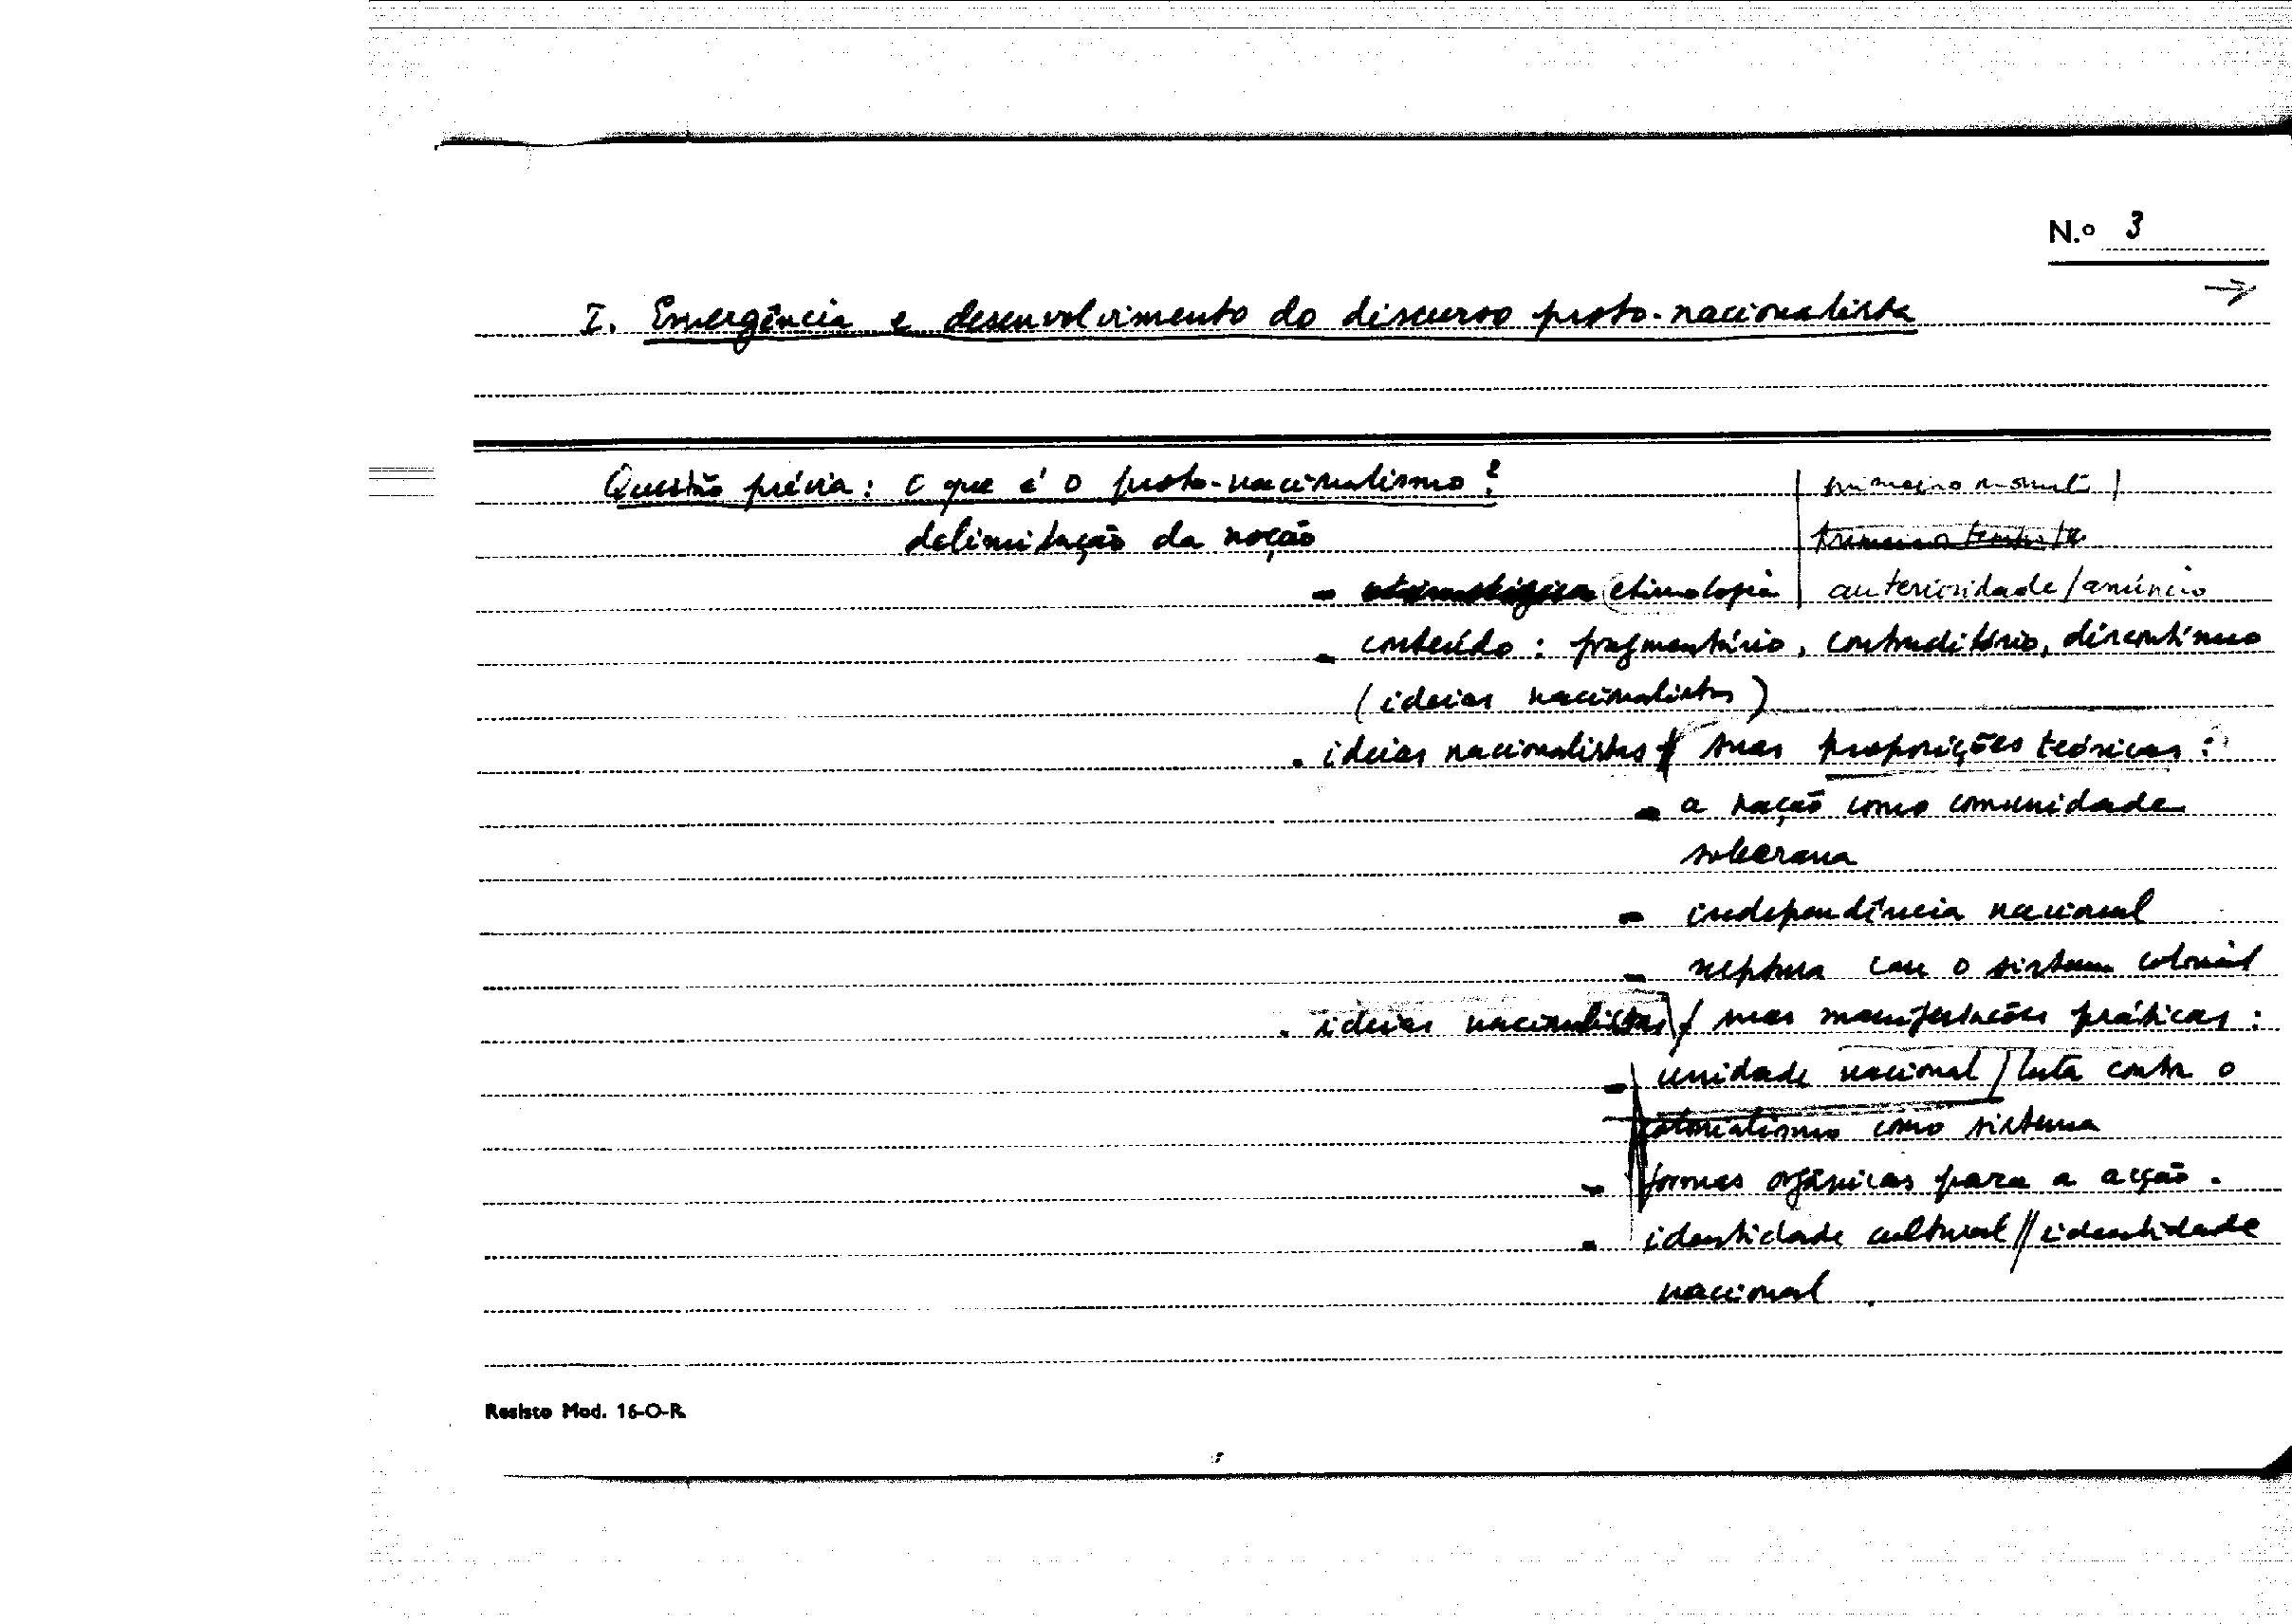 N.º 3
→
I. Emergência e desenvolvimento do discurso proto-nacionalista
Questão prévia: O que é o proto-nacionalismo?
primeiro
delimitação da noção
- etimologia | anterioridade/anúncio
- conteúdo: fragmentário, contraditório, discontínuo
(ideias nacionalistas)
. ideias nacionalistas / suas proposições teóricas:
- a nação como comunidade
soberana
- independência nacional
- ruptura com o sistema colonial
. ideias nacionalistas / suas manifestações práticas:
- unidade nacional / luta contra o
colonialismo como sistema
- formas orgânicas para a acção.
- identidade cultural // identidade
nacional.
Resisto Mod. 16-O-R.